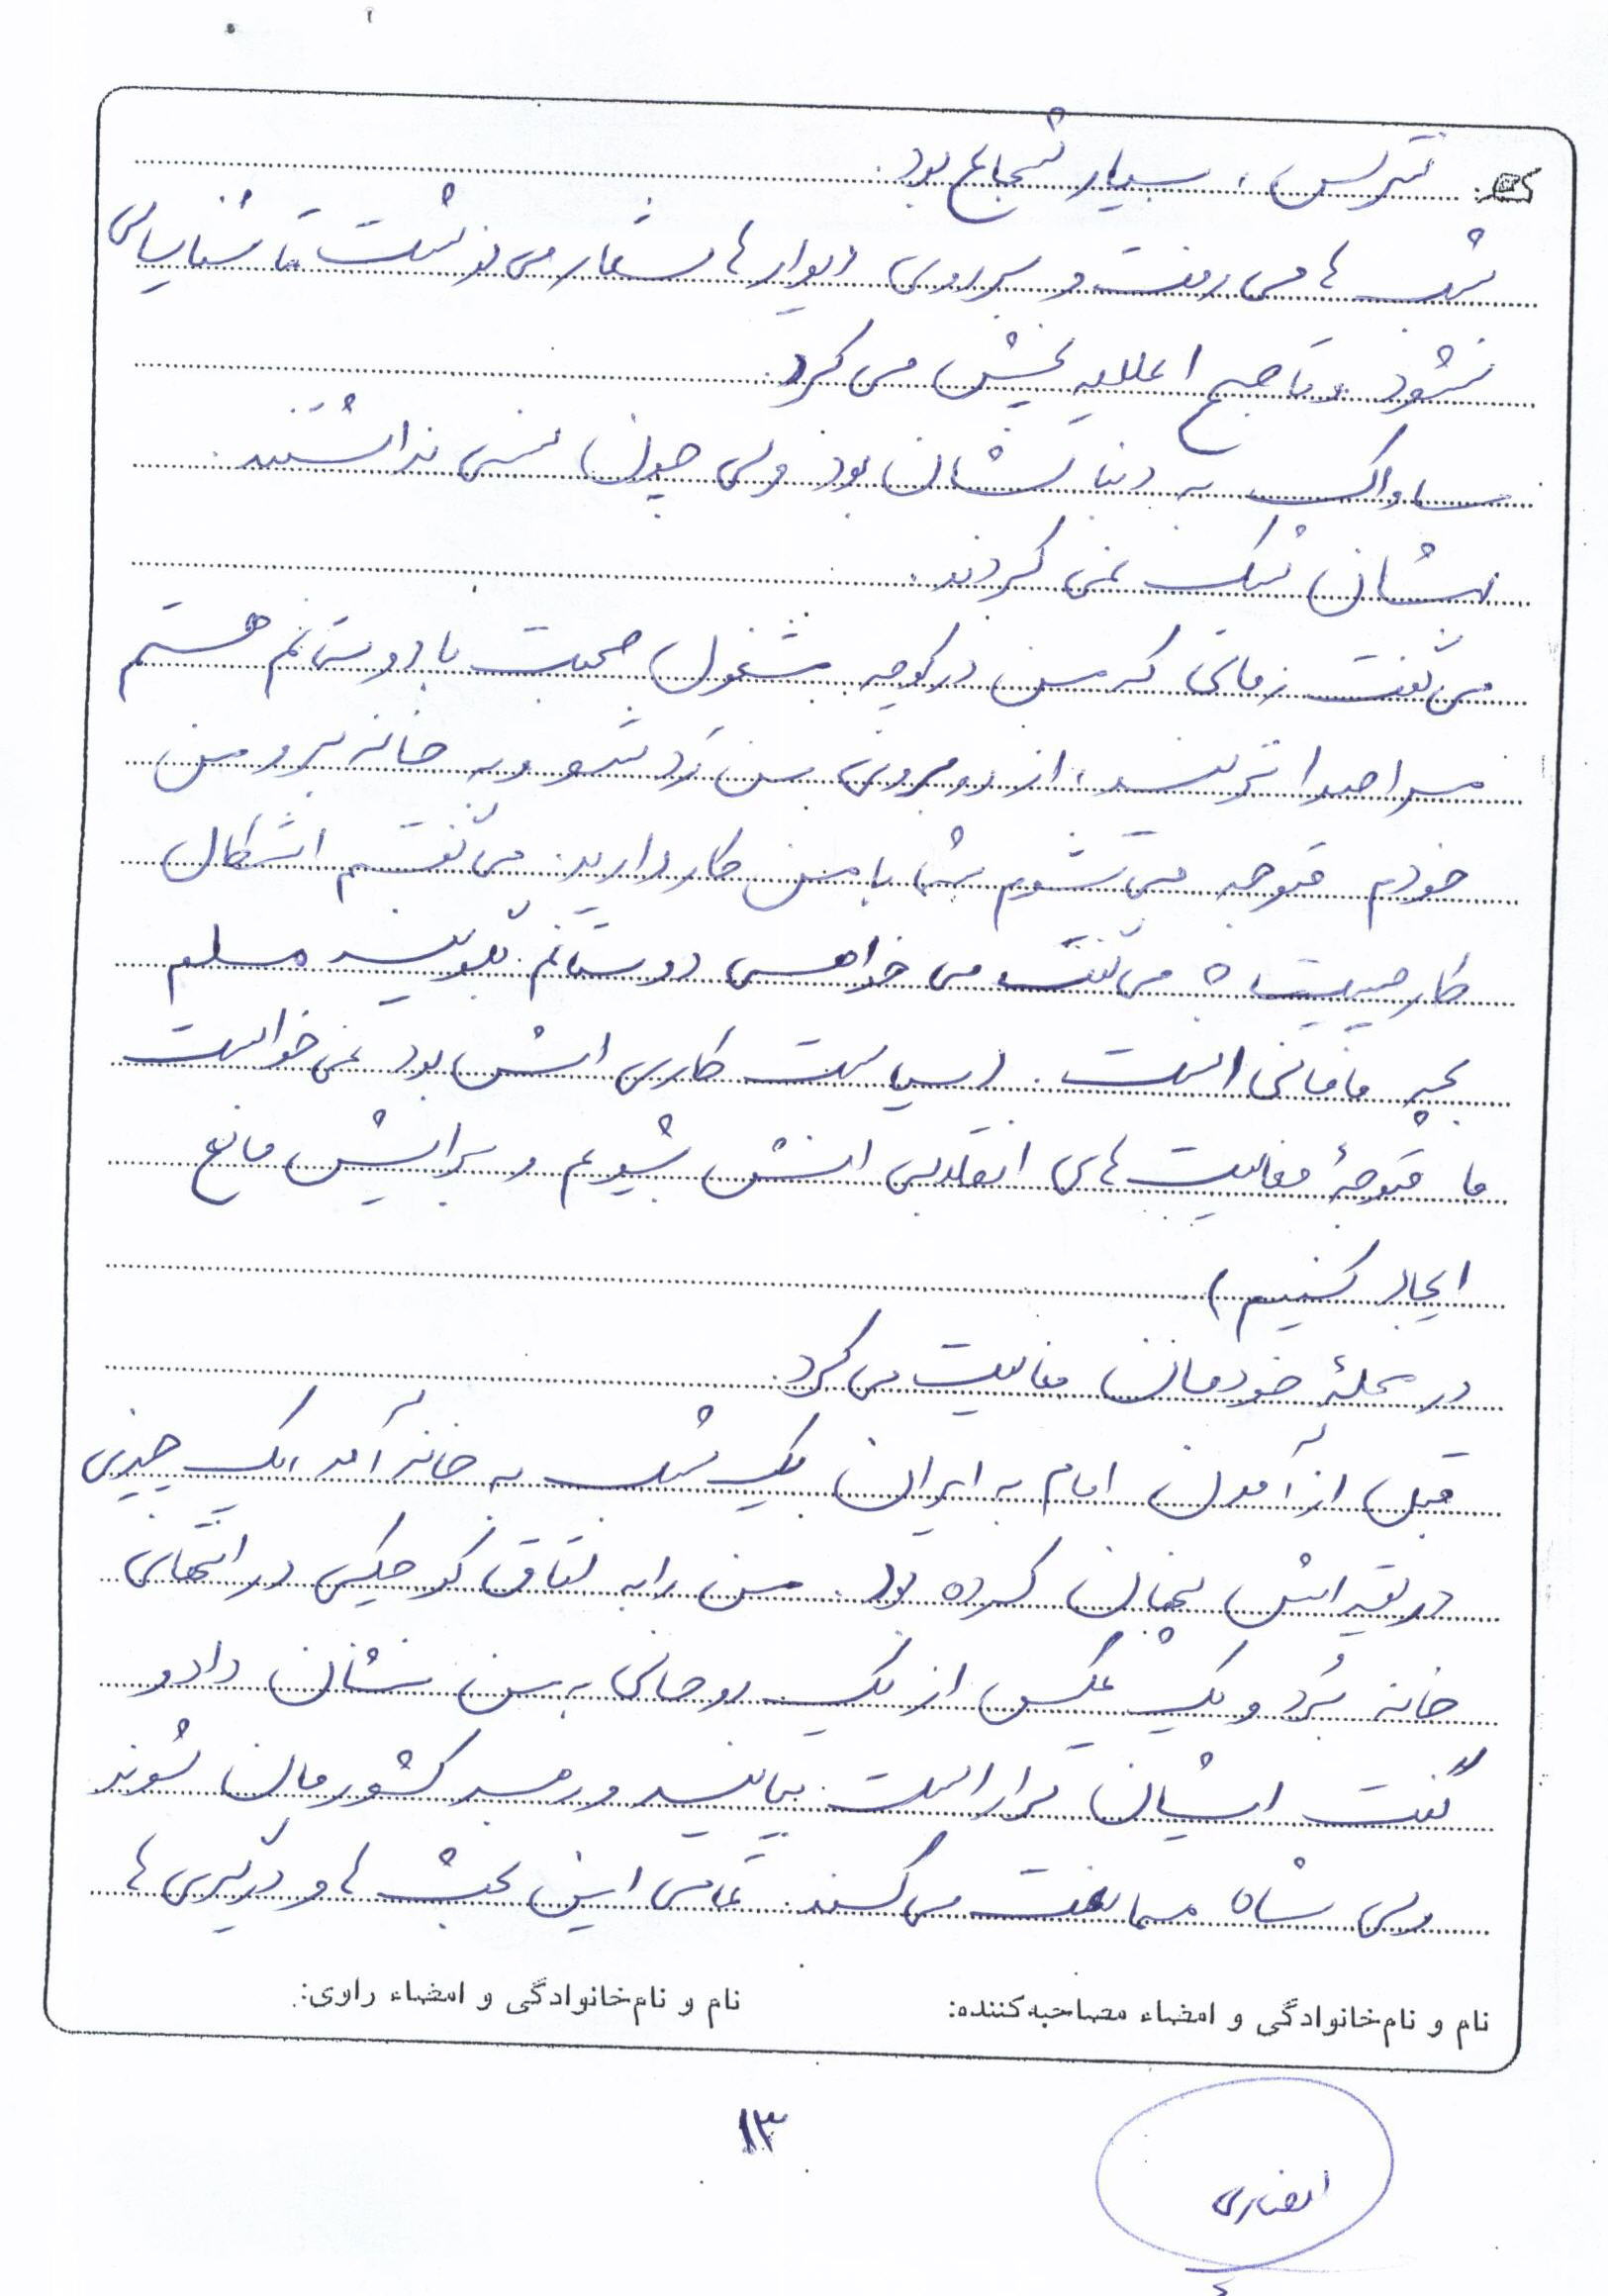 نترس، بسیار شجاع بود.
شب ها می رفت و بر روی دیوارها شعار می نوشت تا شناسایی
نشود و تا صبح اعلامیه پخش می کرد.
ساواک به دنبالشان بود ولی چون سنی نداشتند
بهشان شک نمی کردند.
می گفت زمانی که من در کوچه مشغول صحبت با دوستانم هستم
مرا صدا نزنید، از روبروی من رد شو و به خانه برو من
خودم متوجه می شوم شما با من کار دارید. می گفتم اشکال
کار چیست؟ می گفت می خواهی دوستانم بگویند مسلم
بچه مامانی است. (سیاست کاری اش بود نمی خواست
ما متوجۀ فعالیت های انقلابی اش بشویم و برایش مانع
ایجاد کنیم)
در محلۀ خودمان فعالیت می کرد.
قبل از آمدن امام به ایران یک شب به خانه آمد، یک چیزی
در یقه اش پنهان کرده بود. من را به اتاق کوچکی در انتهای
خانه بُرد و یک عکس از یک روحانی به من نشان داد و
گفت ایشان قرار است بیایند و رهبر کشورمان شوند
ولی شاه ممانعت می کند. تمامی این بحث ها و درگیری ها
نام و نام‌خانوادگی و امضاء مصاحبه‌کننده: نام و نام‌خانوادگی و امضاء راوی:
۱۳
انصاری